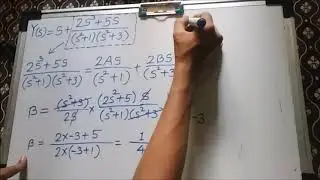 Y(s) = 5 + (2s³+5s)/((s²+1)(s²+3))
(2s³+5s)/((s²+1)(s²+3)) = 2AS/(s²+1) + 2BS/(s²+3)
B = (s²+3)/2s × (2s²+5)s/((s²+1)(s²+3)) -3
B = (2×-3+5)/(2×(-3+1)) = 1/4